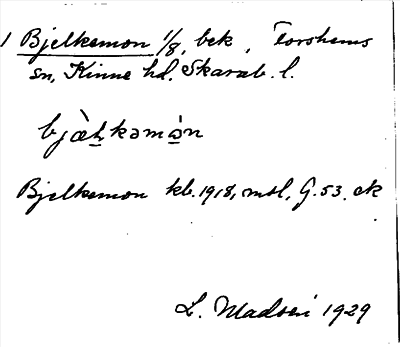 1 Bjelkemon 1/8, bek, Forshems
sn, Kinne hd. Skarab. l.
bjæ̀l̠kəmɷ̀n
Bjelkemon kb. 1918, mtl, G. 53. ek
L. Madsén 1929